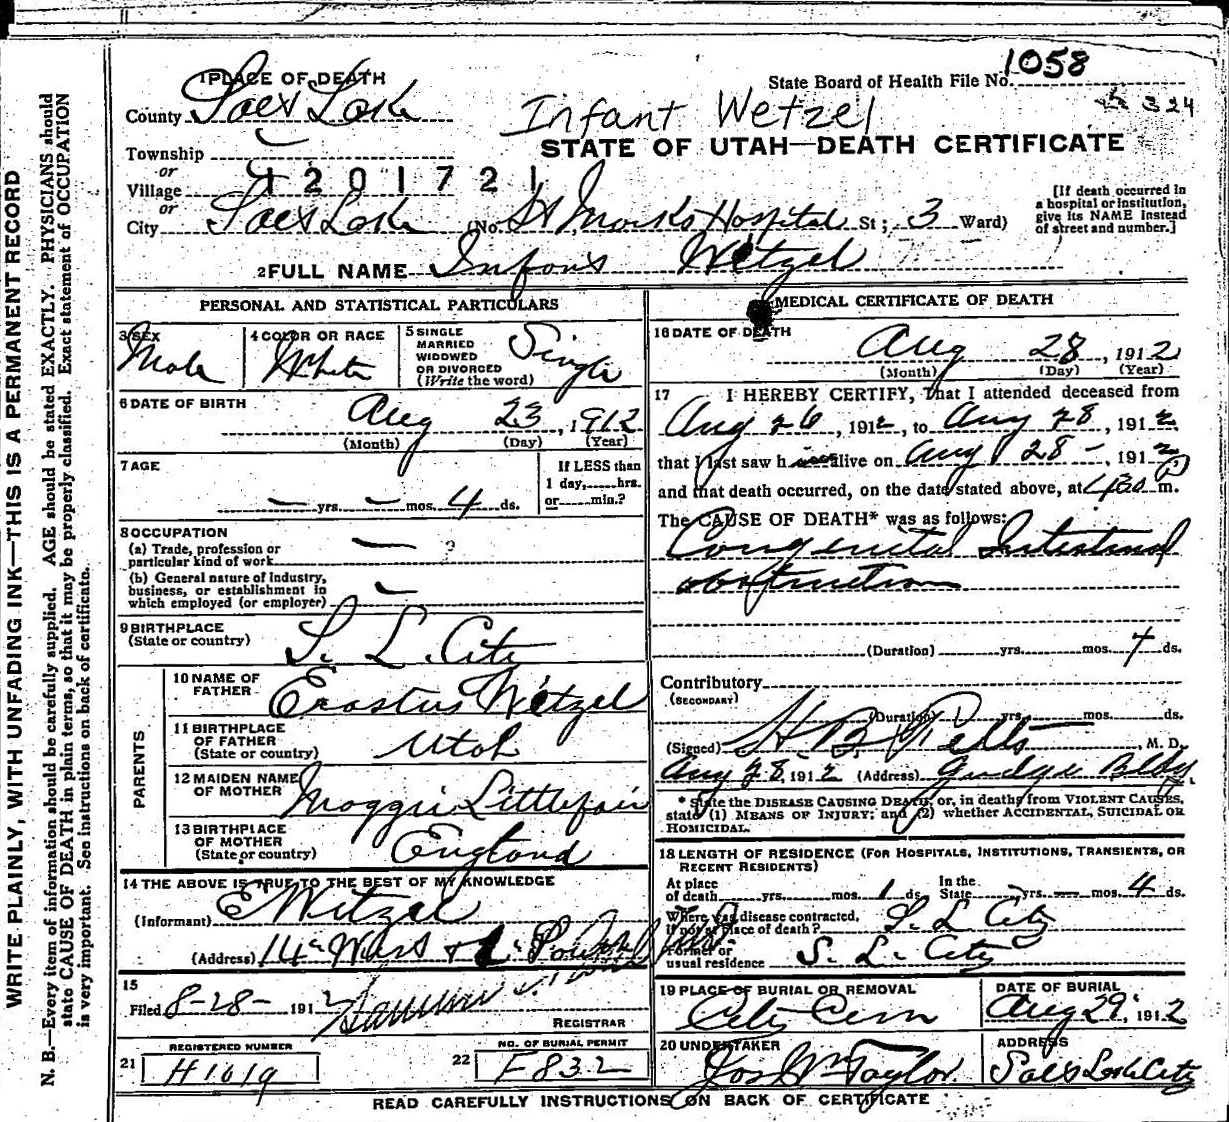 1 PLACE OF DEATH
State Board of Health File No. 1058
County Salt Lake
Infant Wetzel
324
STATE OF UTAH—DEATH CERTIFICATE
Township
or
Village
1201721
or
City Salt Lake (No. St Marks Hospital St; 3 Ward)
[If death occurred in a hospital or institution, give its NAME instead of street and number.]
2 FULL NAME Infant Wetzel
PERSONAL AND STATISTICAL PARTICULARS
3 SEX
Male
4 COLOR OR RACE
White
5 SINGLE
MARRIED
WIDOWED
OR DIVORCED
(Write the word)
Single
6 DATE OF BIRTH
Aug 23, 1912
(Month) (Day) (Year)
7 AGE
— yrs. — mos. 4 ds.
If LESS than
1 day,......hrs.
or......min.?
8 OCCUPATION
(a) Trade, profession or
particular kind of work
(b) General nature of Industry,
business, or establishment in
which employed (or employer)
9 BIRTHPLACE
(State or country)
S. L. City
PARENTS
10 NAME OF
FATHER
Erastus Wetzel
11 BIRTHPLACE
OF FATHER
(State or country)
Utah
12 MAIDEN NAME
OF MOTHER
Maggie Littlefair
13 BIRTHPLACE
OF MOTHER
(State or country)
England
14 THE ABOVE IS TRUE TO THE BEST OF MY KNOWLEDGE
(Informant) E Wetzel
(Address) 14th West &
15
Filed 8-28- 1912
REGISTRAR
REGISTERED NUMBER
21 H1019
NO. OF BURIAL PERMIT
22 F832
MEDICAL CERTIFICATE OF DEATH
16 DATE OF DEATH
Aug 28, 1912
(Month) (Day) (Year)
17 I HEREBY CERTIFY, That I attended deceased from
Aug 26, 1912, to Aug 28, 1912
that I last saw h alive on Aug 28-, 1912
and that death occurred, on the date stated above, at 430 P m.
The CAUSE OF DEATH* was as follows:
Congenital Intestinal
obstruction
(Duration) yrs. mos. 4 ds.
Contributory
(SECONDARY)
(Duration) yrs. mos. ds.
(Signed) H B Felts, M. D.
Aug 28, 1912 (Address) Judge Bldg
* State the DISEASE CAUSING DEATH, or, in deaths from VIOLENT CAUSES,
state (1) MEANS OF INJURY; and (2) whether ACCIDENTAL, SUICIDAL OR
HOMICIDAL.
18 LENGTH OF RESIDENCE (FOR HOSPITALS, INSTITUTIONS, TRANSIENTS, OR
RECENT RESIDENTS)
At place
of death yrs. mos. 1 ds.
In the
State yrs. — mos. 4 ds.
Where was disease contracted,
if not at place of death? S. L. City
Former or
usual residence S. L. City
19 PLACE OF BURIAL OR REMOVAL
City Cem
DATE OF BURIAL
Aug 29, 1912
20 UNDERTAKER
Jos Wm Taylor
ADDRESS
Salt Lake City
READ CAREFULLY INSTRUCTIONS ON BACK OF CERTIFICATE
WRITE PLAINLY, WITH UNFADING INK—THIS IS A PERMANENT RECORD
N. B.—Every item of information should be carefully supplied. AGE should be stated EXACTLY. PHYSICIANS should
state CAUSE OF DEATH in plain terms, so that it may be properly classified. Exact statement of OCCUPATION
is very important. See instructions on back of certificate.